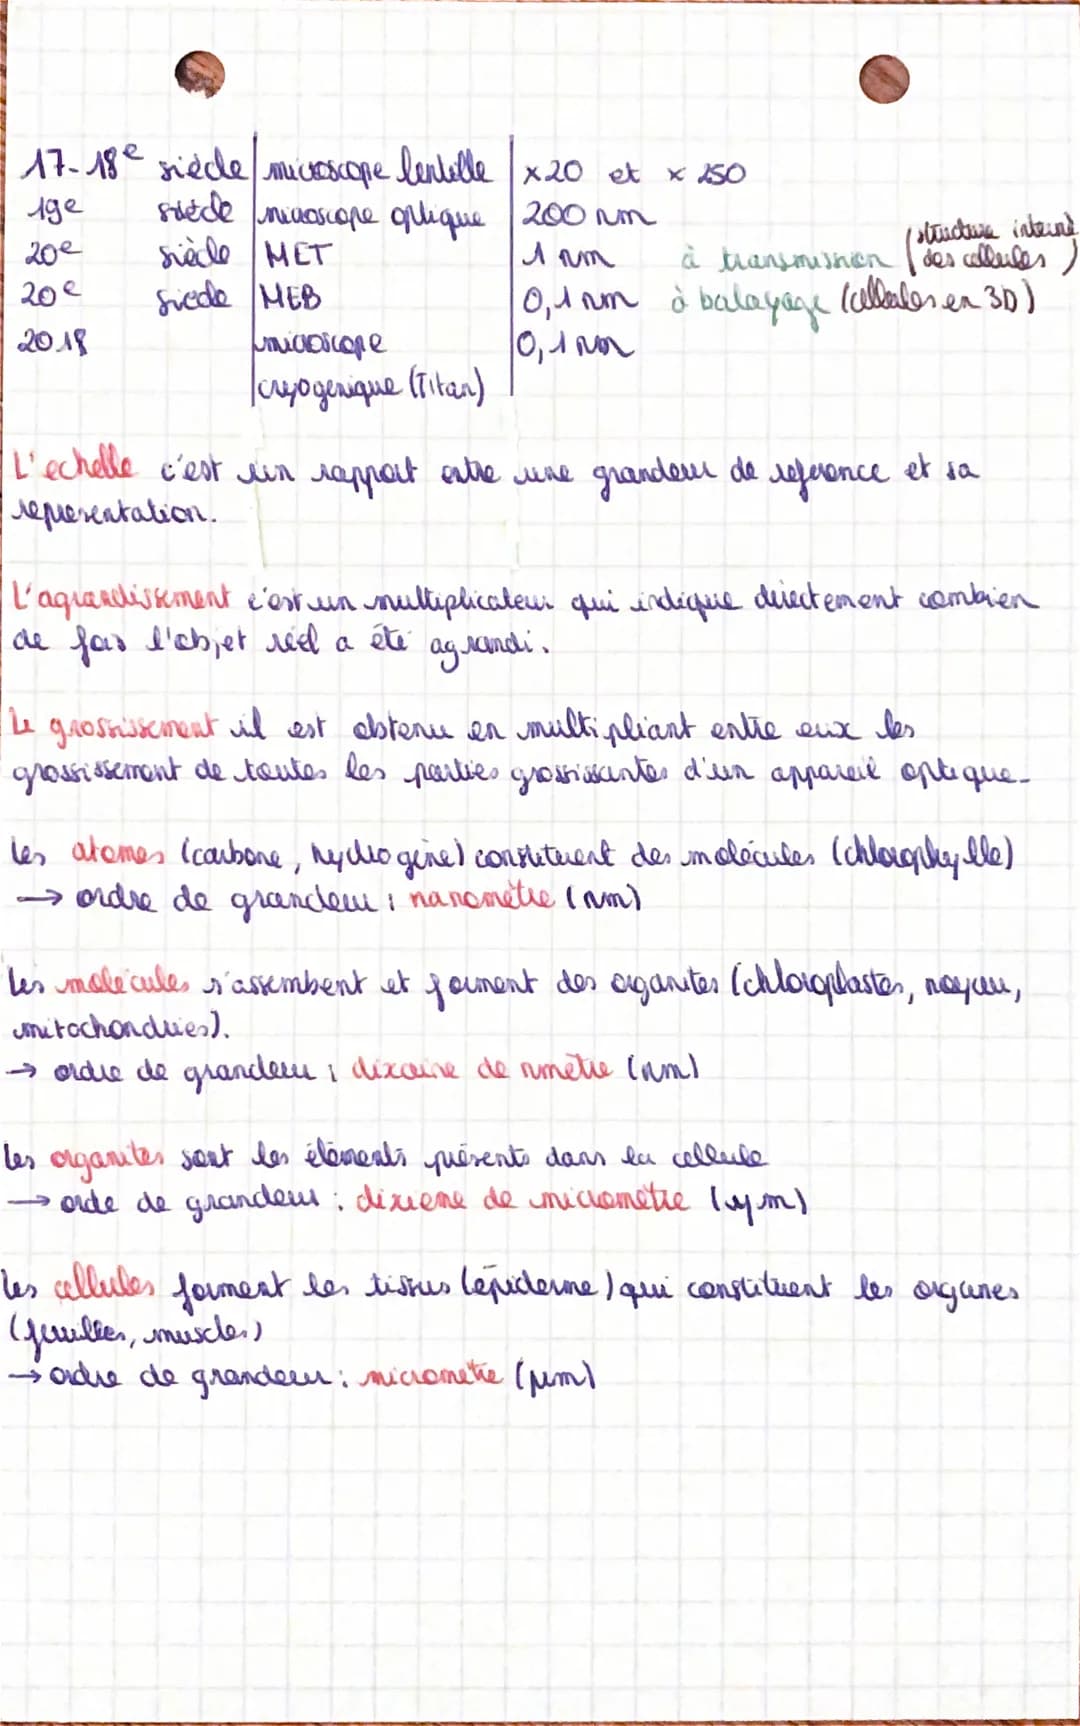 17-18e siècle microscope lentille x20 et x 250
19e siècle microscope optique 200 nm
20e siècle MET 1 nm à transmission (structure interne des cellules)
20e siècle MEB 0,1 nm à balayage (cellules en 3D)
2018 microscope cryogenique (Titan) 0,1 nm
L'echelle c'est un rapport entre une grandeur de reference et sa
representation.
L'agrandissement c'est un multiplicateur qui indique directement combien
de fois l'objet réel a été agrandi.
Le grossissement il est obtenu en multipliant entre eux les
grossissement de toutes les parties grossissantes d'un appareil optique.
Les atomes (carbone, hydrogène) constituent des molécules (chlorophylle)
→ ordre de grandeur : nanomètre (nm)
Les molécules s'assembent et forment des organites (chloroplastes, noyau,
mitochondries).
→ ordre de grandeur : dixaine de nmètre (nm)
Les organites sont les éléments présents dans la cellule
→ orde de grandeur : dixieme de micromètre (μm)
Les cellules forment les tissus (épiderme) qui constituent les organes
(feuilles, muscles)
→ ordre de grandeur : micromètre (μm)